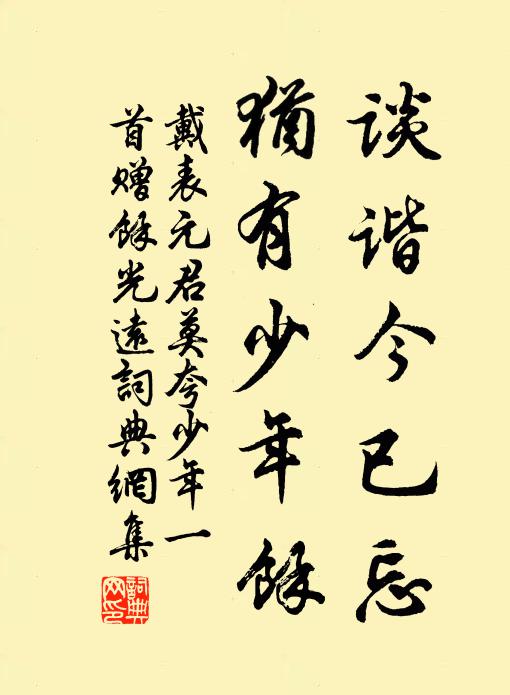 谈谐今已忘
犹有少年馀
戴表元君莫夸少年一
首赠馀光远词典网集
词典网印